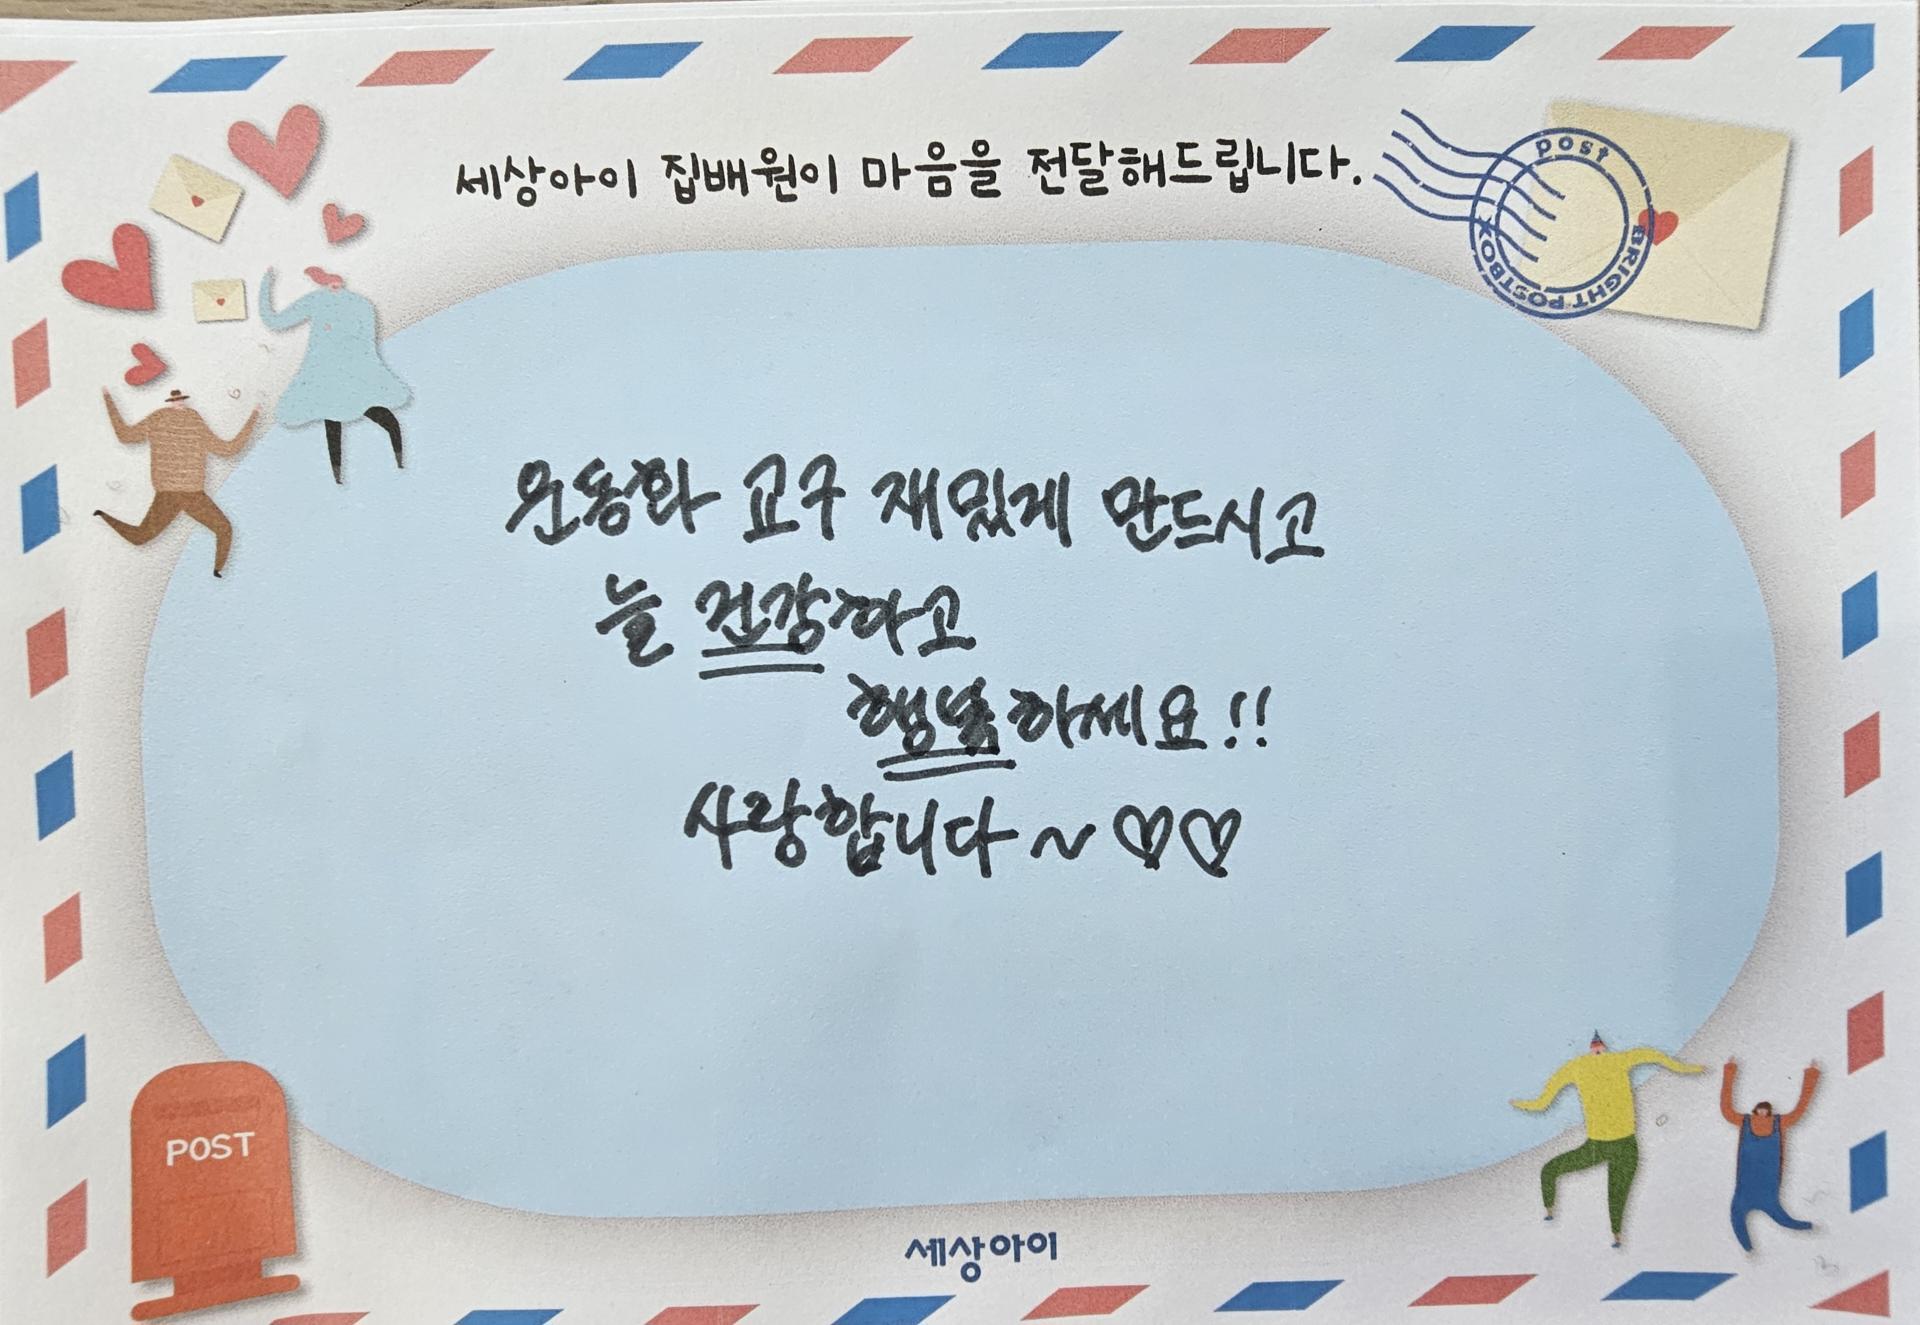 세상아이 집배원이 마음을 전달해드립니다.
post
BRIGHT POSTBOX
운동화 교구 재밌게 만드시고
늘 건강하고
행복하세요!!
사랑합니다~♡♡
POST
세상아이